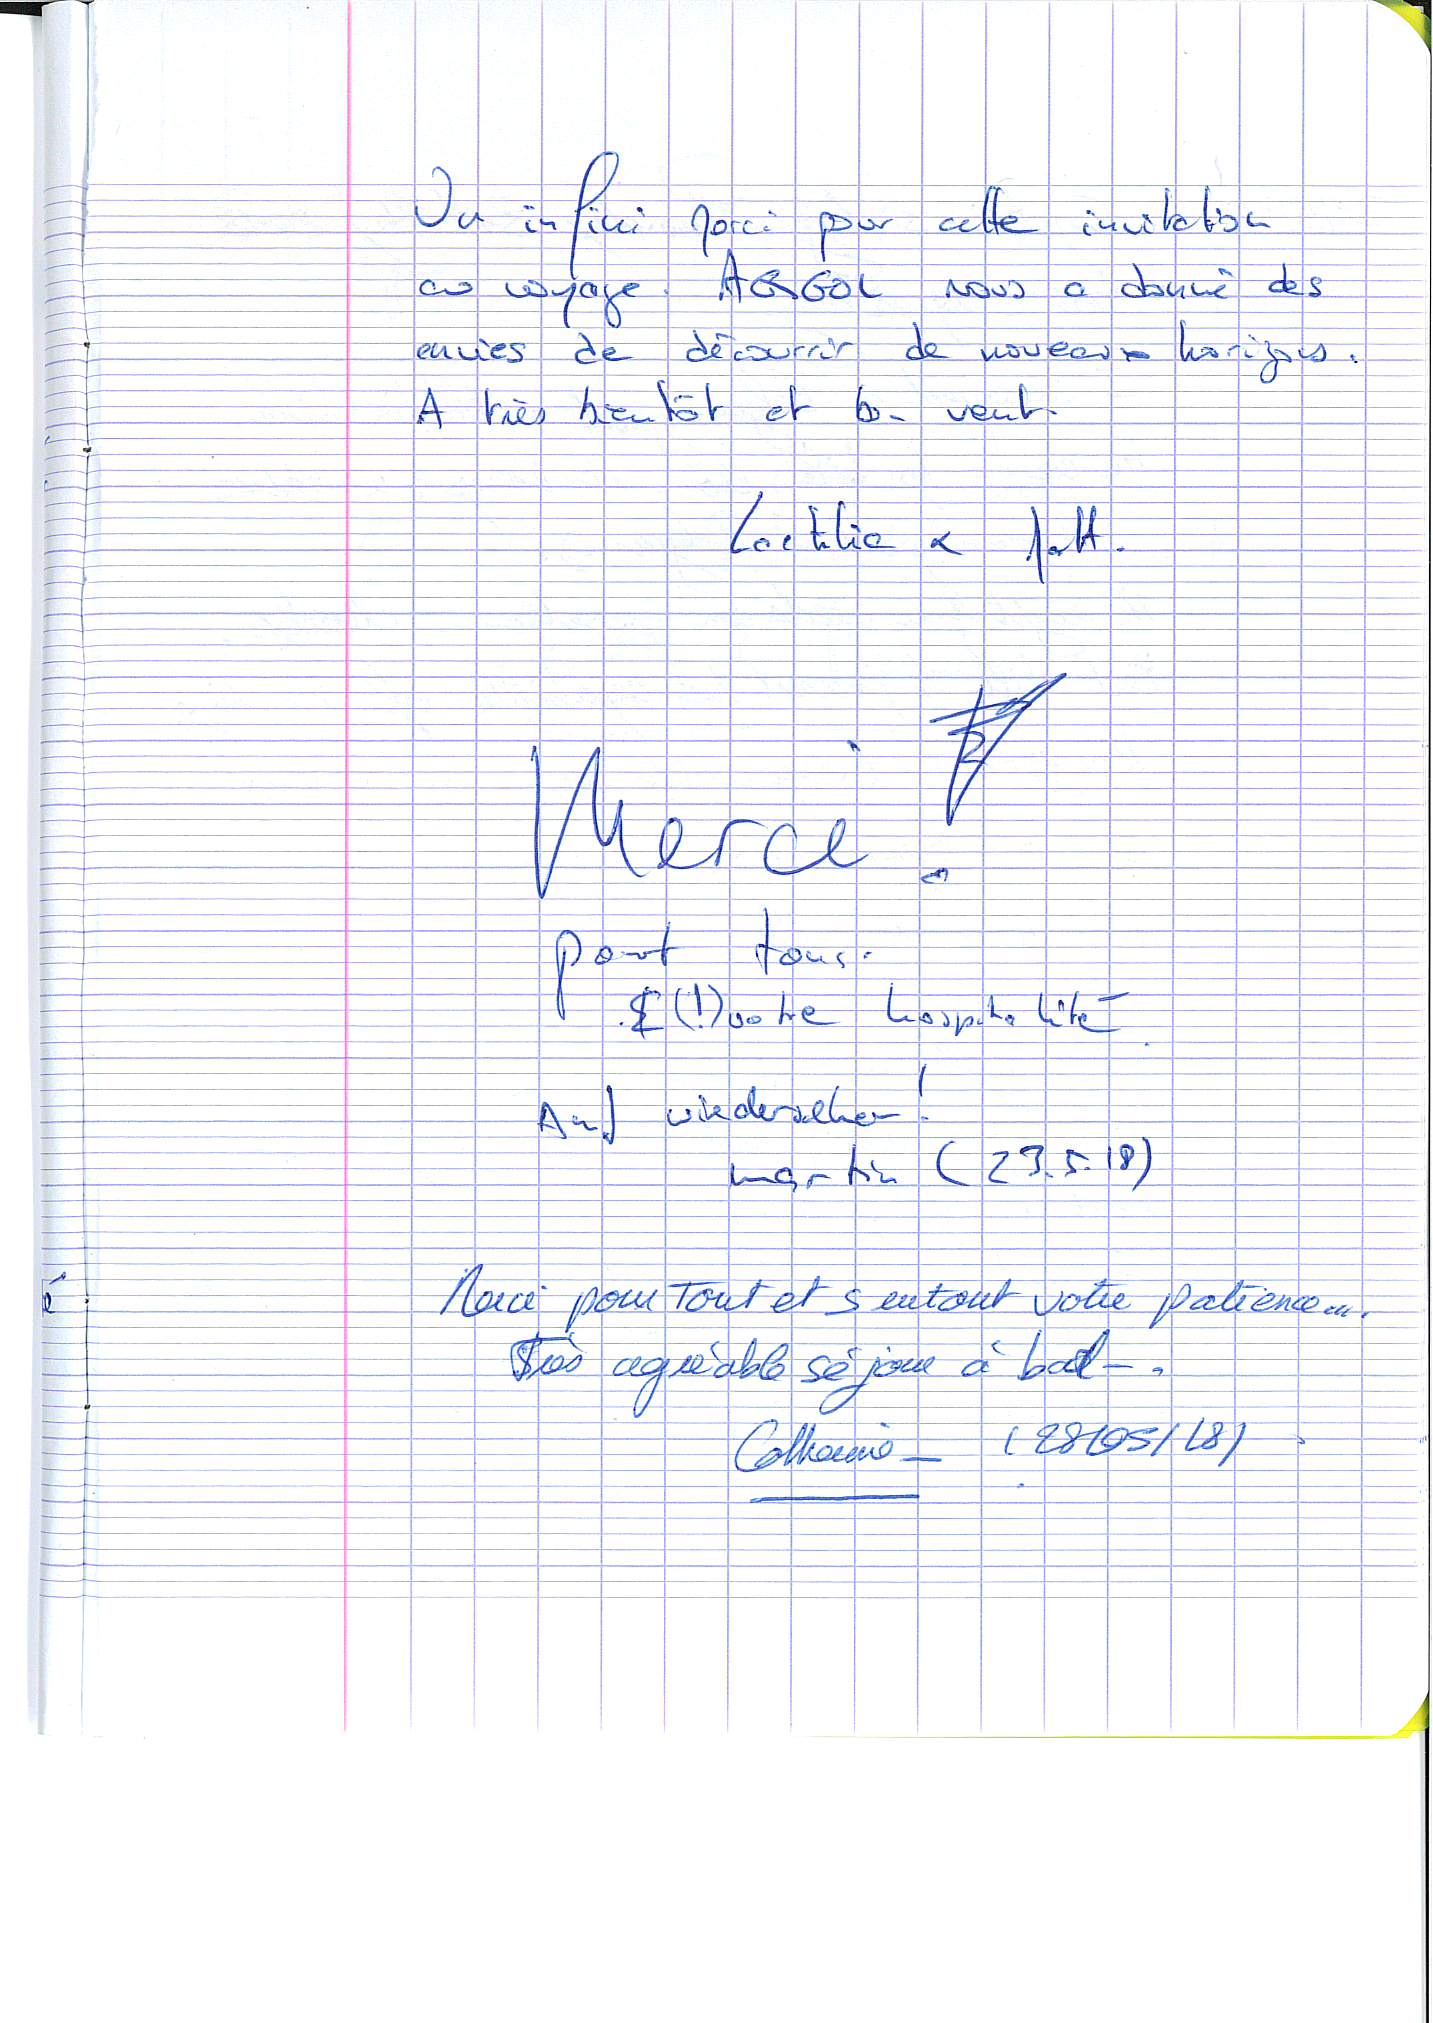 Un infini merci pour cette invitation
au voyage. ARGOL nous a donné des
envies de découvrir de nouveaux horizons.
A très bientôt et bon vent.
Laetitia &
Merci !
pour tous.
(!) votre hospitalité
Auf wiedersehen!
martin (23.5.18)
é
Merci pour Tout et surtout votre patience....
Très agréable séjour à bord.
Catherine (28/05/18)